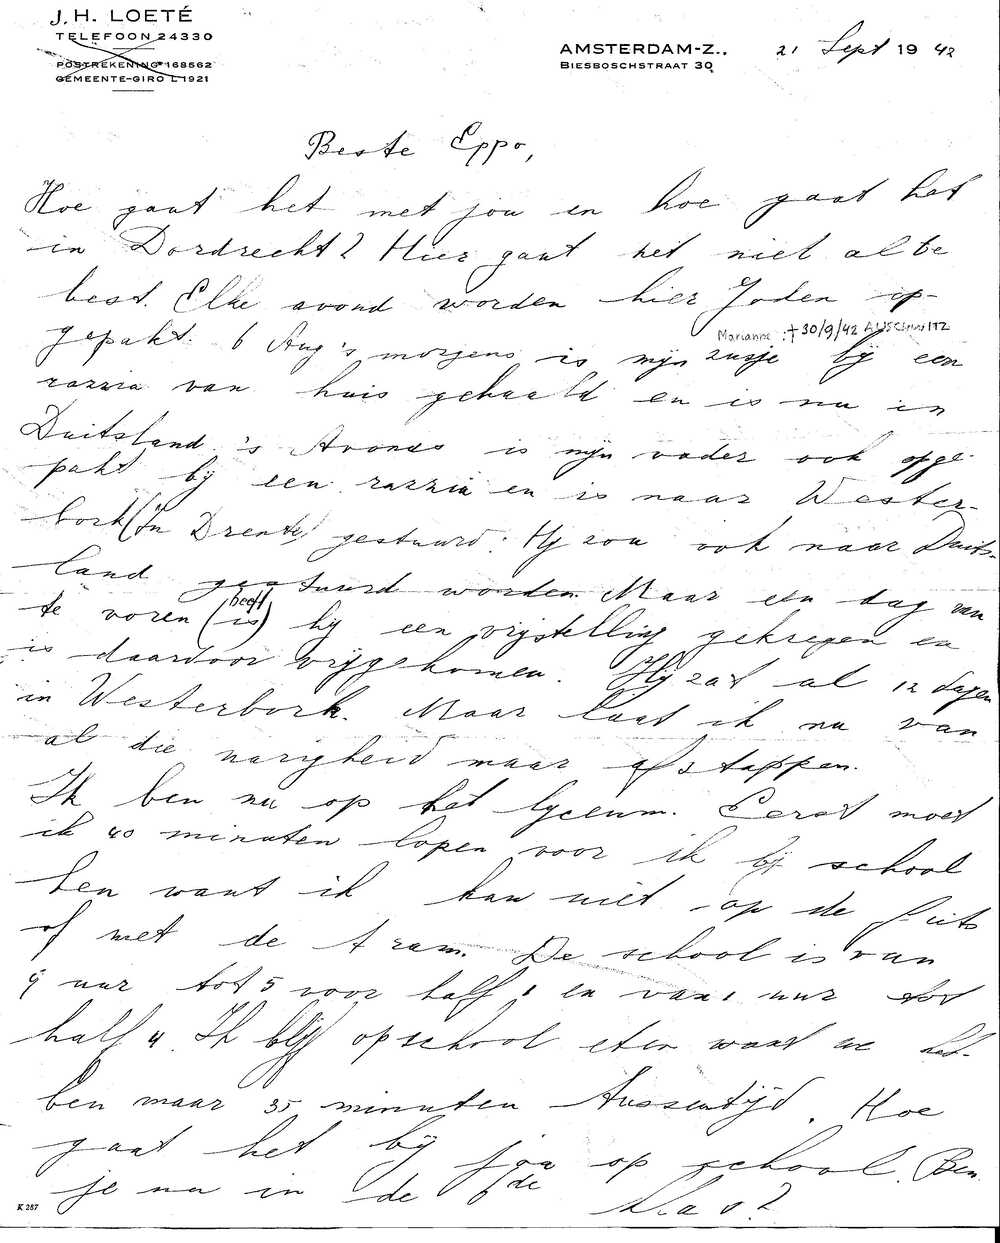 J. H. LOETÉ
TELEFOON 24330
POSTREKENING 168562
GEMEENTE-GIRO L 1921
AMSTERDAM-Z., 21 Sept 1942
BIESBOSCHSTRAAT 30
Beste Eppo,
Hoe gaat het met jou en hoe gaat het
in Dordrecht? Hier gaat het niet al te
best. Elke avond worden hier Joden op-
Marianne : † 30/9/42 AUSCHWITZ
gepakt. 6 Aug 's morgens is mijn zusje bij een
razzia van huis gehaald en is nu in
Duitsland 's Avonds is mijn vader ook opge-
pakt bij een razzia en is naar Wester-
bork (in Drente) gestuurd. Hij zou ook naar Duits-
land gestuurd worden. Maar een dag van
heeft
te voren (is) hij een vrijstelling gekregen en
is daardoor vrijgekomen. Hij zat al 12 dagen
in Westerbork. Maar laat ik nu van
al die narigheid maar afstappen.
Ik ben nu op het lyceum. Eerst moet
ik 40 minuten lopen voor ik bij school
ben want ik kan niet op de fiets
of met de tram. De school is van
9 uur tot 5 voor half 1 en van 1 uur tot
half 4. Ik blijf op school eten want we heb-
ben maar 35 minuten tussentijd. Hoe
gaat het bij jou op school. Ben
je nu in de 6de klas?
K 287